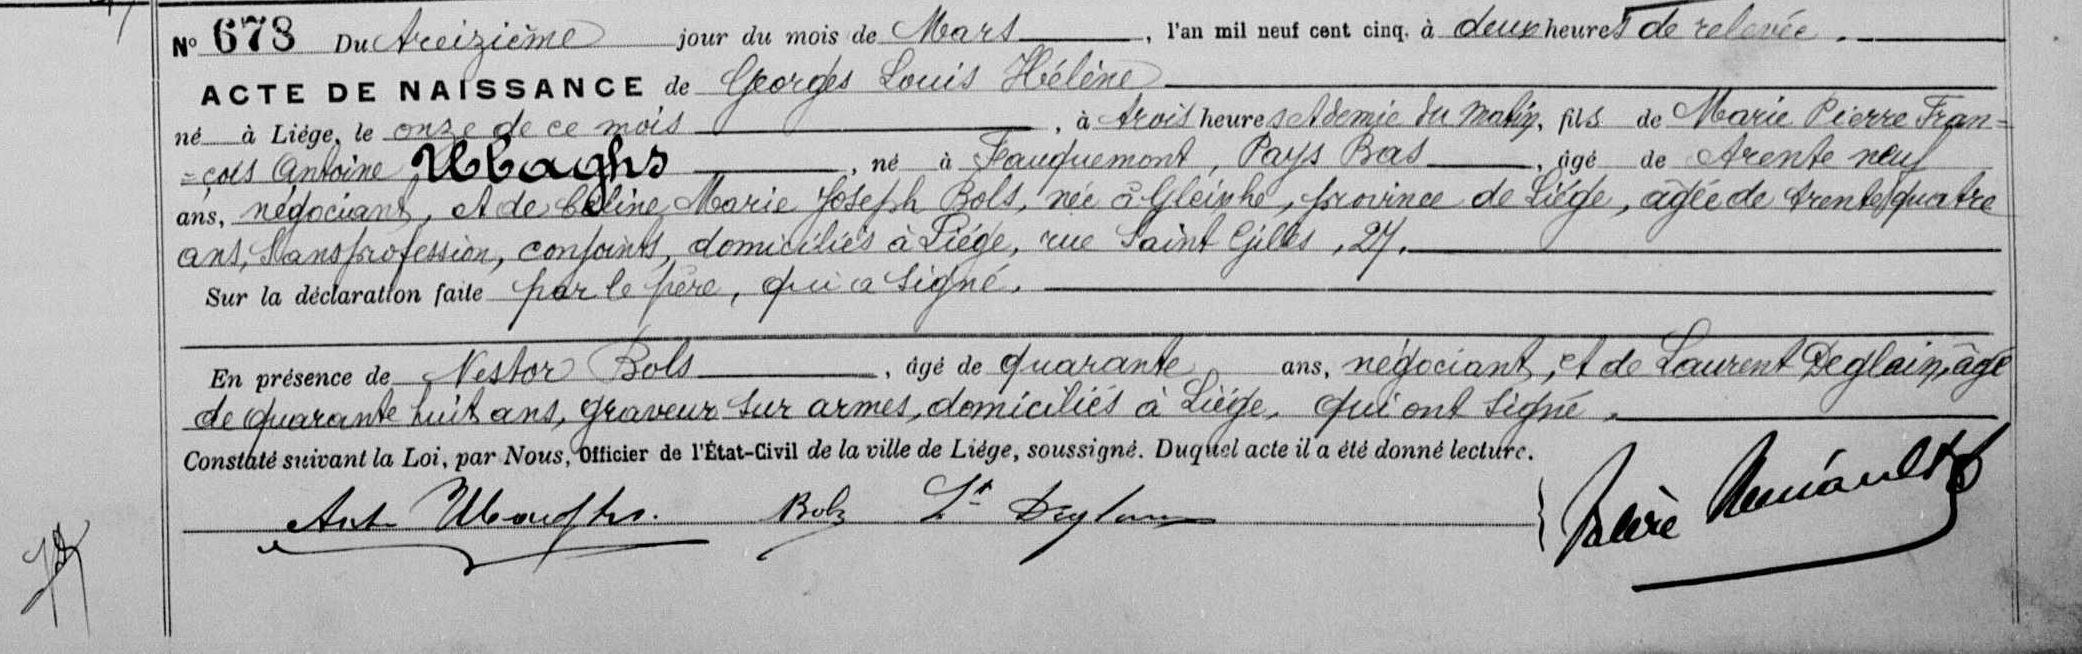 N° 673 Du treizième jour du mois de Mars, l'an mil neuf cent cinq, à deux heures de relevée.
ACTE DE NAISSANCE de Georges Louis Hélène
né à Liége, le onze de ce mois, à trois heures et demie du matin, fils de Marie Pierre Fran=
=çois Antoine Ubaghs, né à Fauquemont, Pays Bas, âgé de trente neuf
ans, négociant, et de Céline Marie Joseph Bols, née à Gleixhe, province de Liége, âgée de trente quatre
ans, sans profession, conjoints, domiciliés à Liége, rue Saint Gilles, 27.
Sur la déclaration faite par le père, qui a signé.
En présence de Nestor Bols, âgé de quarante ans, négociant, et de Laurent Deglain, âgé
de quarante huit ans, graveur sur armes, domiciliés à Liége, qui ont signé.
Constaté suivant la Loi, par Nous, Officier de l'État-Civil de la ville de Liége, soussigné. Duquel acte il a été donné lecture.
Ant Ubaghs. Bols Lt Deglain Valère Hénault